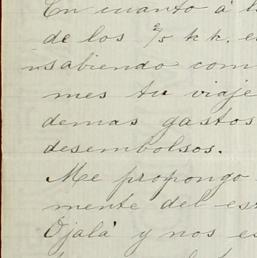 En cuanto á l
de los 2/5 kk. e
sabiendo com
mes tu viaje
demas gastos
desembolsos.
Me propongo
mente del es
Ojalá y nos es